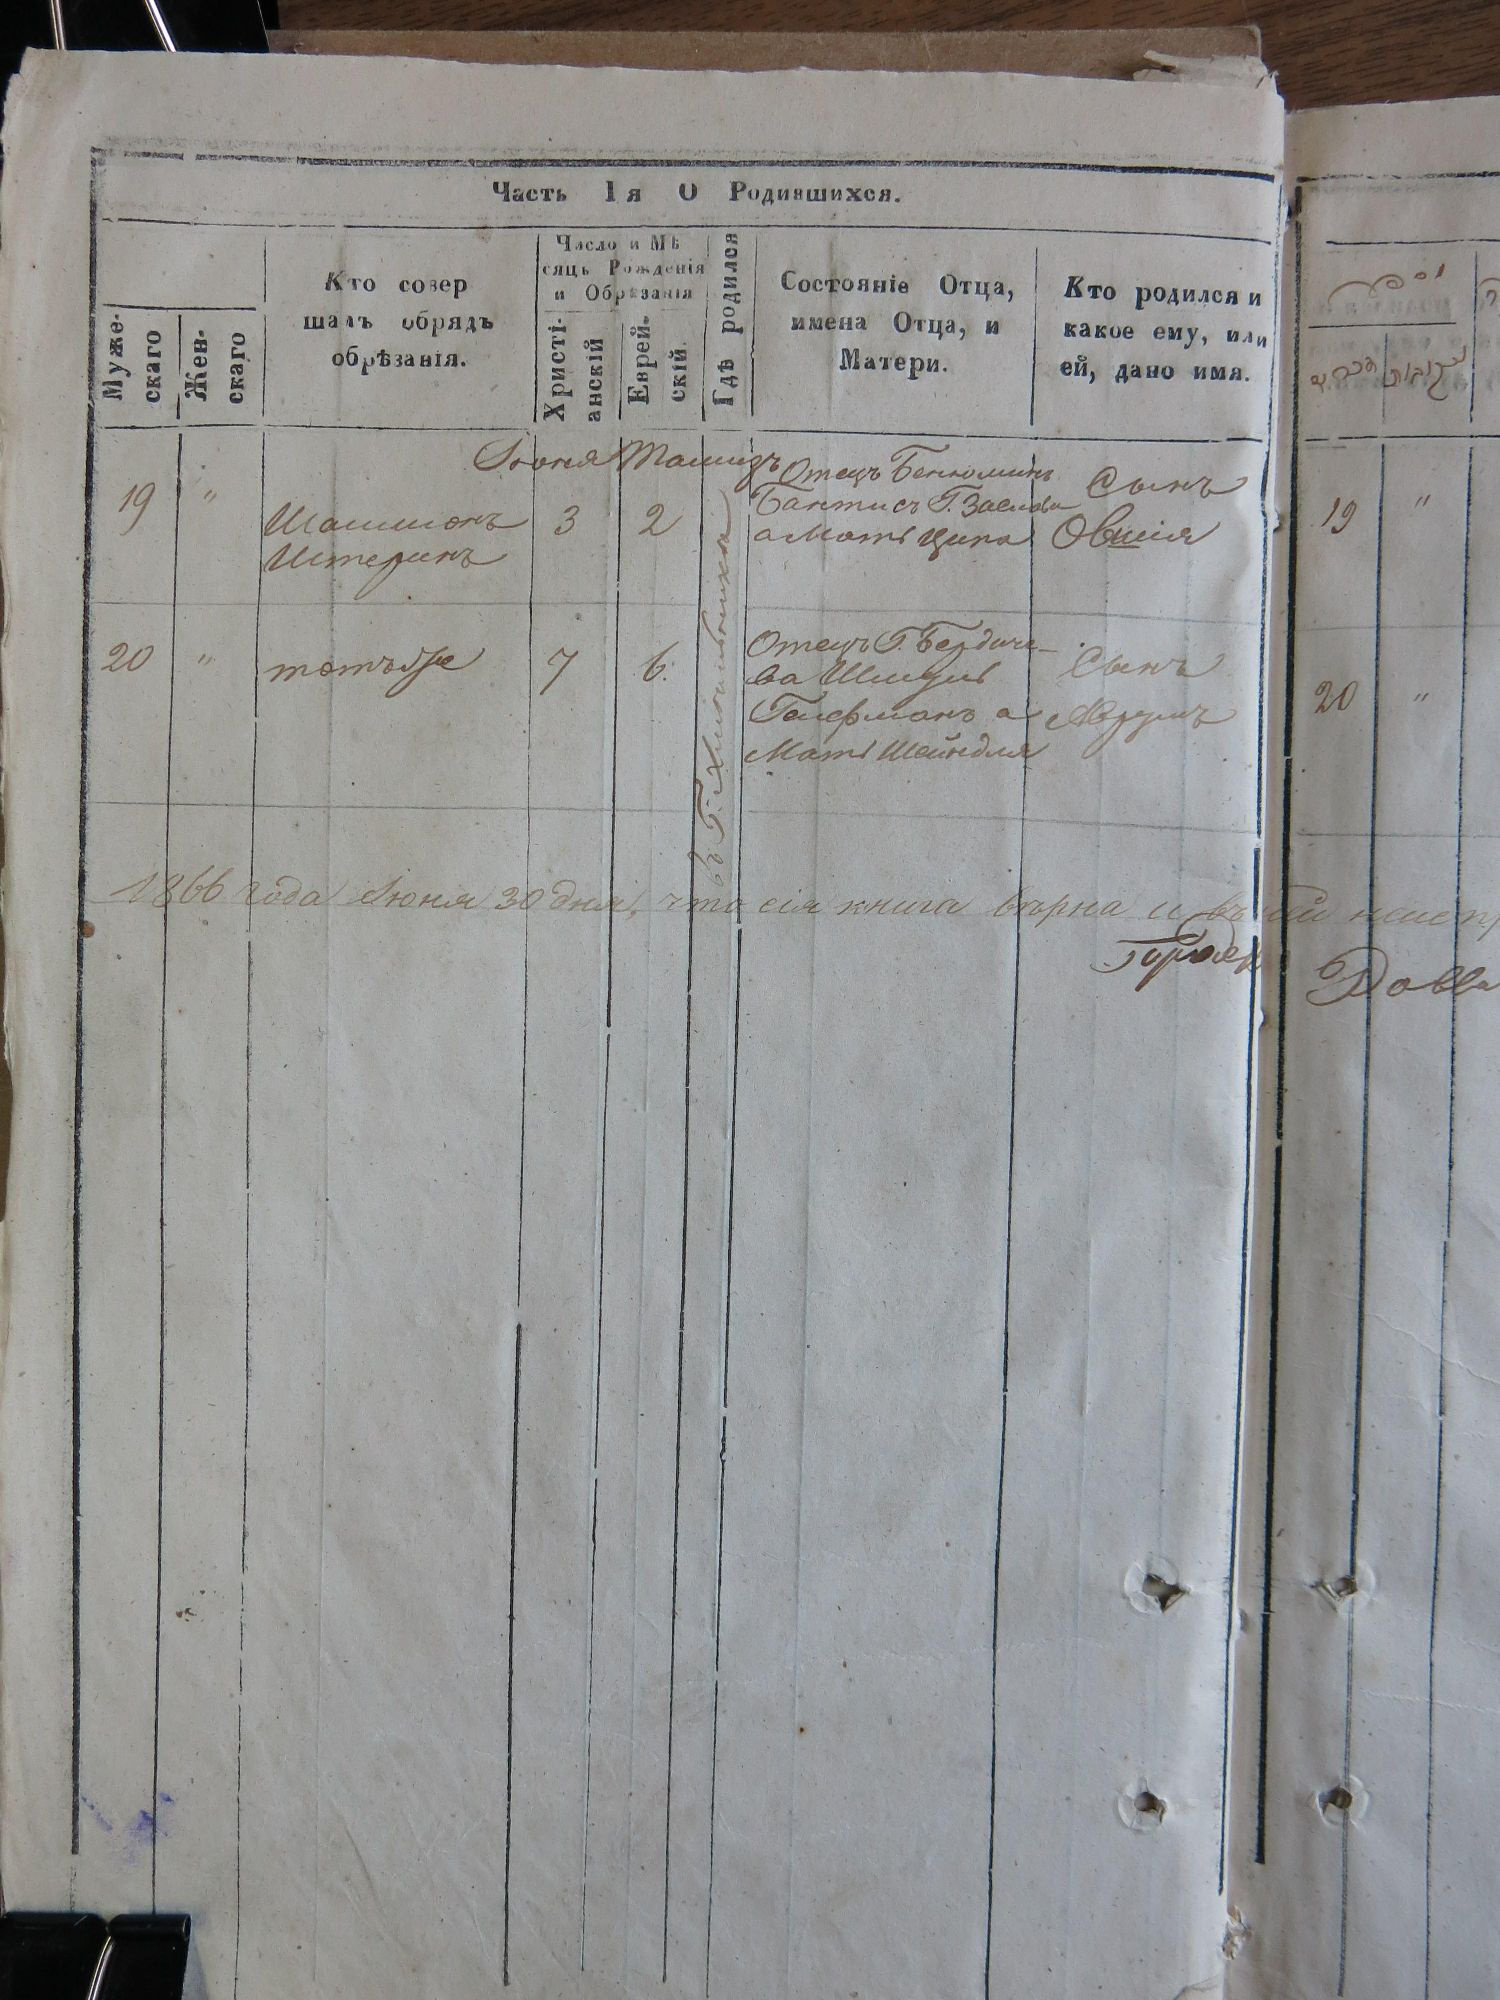 Часть Iя О Родившихся.
Муже-
скаго
Жен-
скаго
Кто совер
шалъ обрядъ
обрѣзанія.
Число и Мѣ
сяцъ Рожденія
и Обрѣзанія
Христі-
анскій
Еврей-
скій
Гдѣ родился
Состояніе Отца,
имена Отца, и
Матери.
Кто родился и
какое ему, или
ей, дано имя.
Іюня Тамизъ
19 " Шашмонъ
Штеринъ
3 2
въ Г. Хмельникѣ
Отецъ Бенюминъ
Бантисъ Г. Заслова
а Мать Ципа
Сынъ
Овшія
20 " тотъ же 7 6.
Отецъ Г. Бердиче-
ва Шмуль
Гелфманъ а
Мать Шейндля
Сынъ
Аврумъ
1866 года Іюня 30 дня, что сія книга вѣрна и въ ней
19 "
20 "